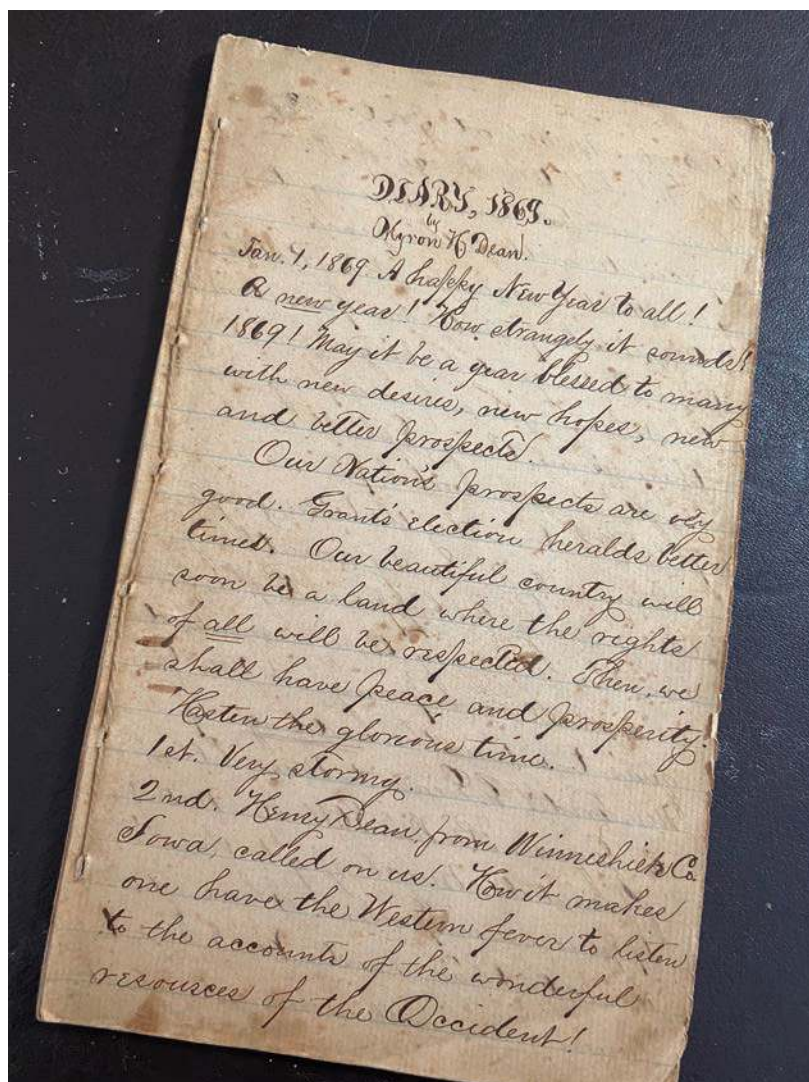 DIARY, 1869.
by
Myron H Dean.
Jan. 1, 1869. A happy New Year to all!
A new year! How strangely it sounds!
1869! May it be a year blessed to many
with new desires, new hopes, new
and better prospects.
Our Nation's prospects are very
good. Grant's election heralds better
times. Our beautiful country will
soon be a land where the rights
of all will be respected. Then, we
shall have peace and prosperity.
Hasten the glorious time.
1st. Very stormy.
2nd. Henry Dean, from Winneshiek Co.
Iowa, called on us. How it makes
one have the Western fever to listen
to the accounts of the wonderful
resources of the Occident!